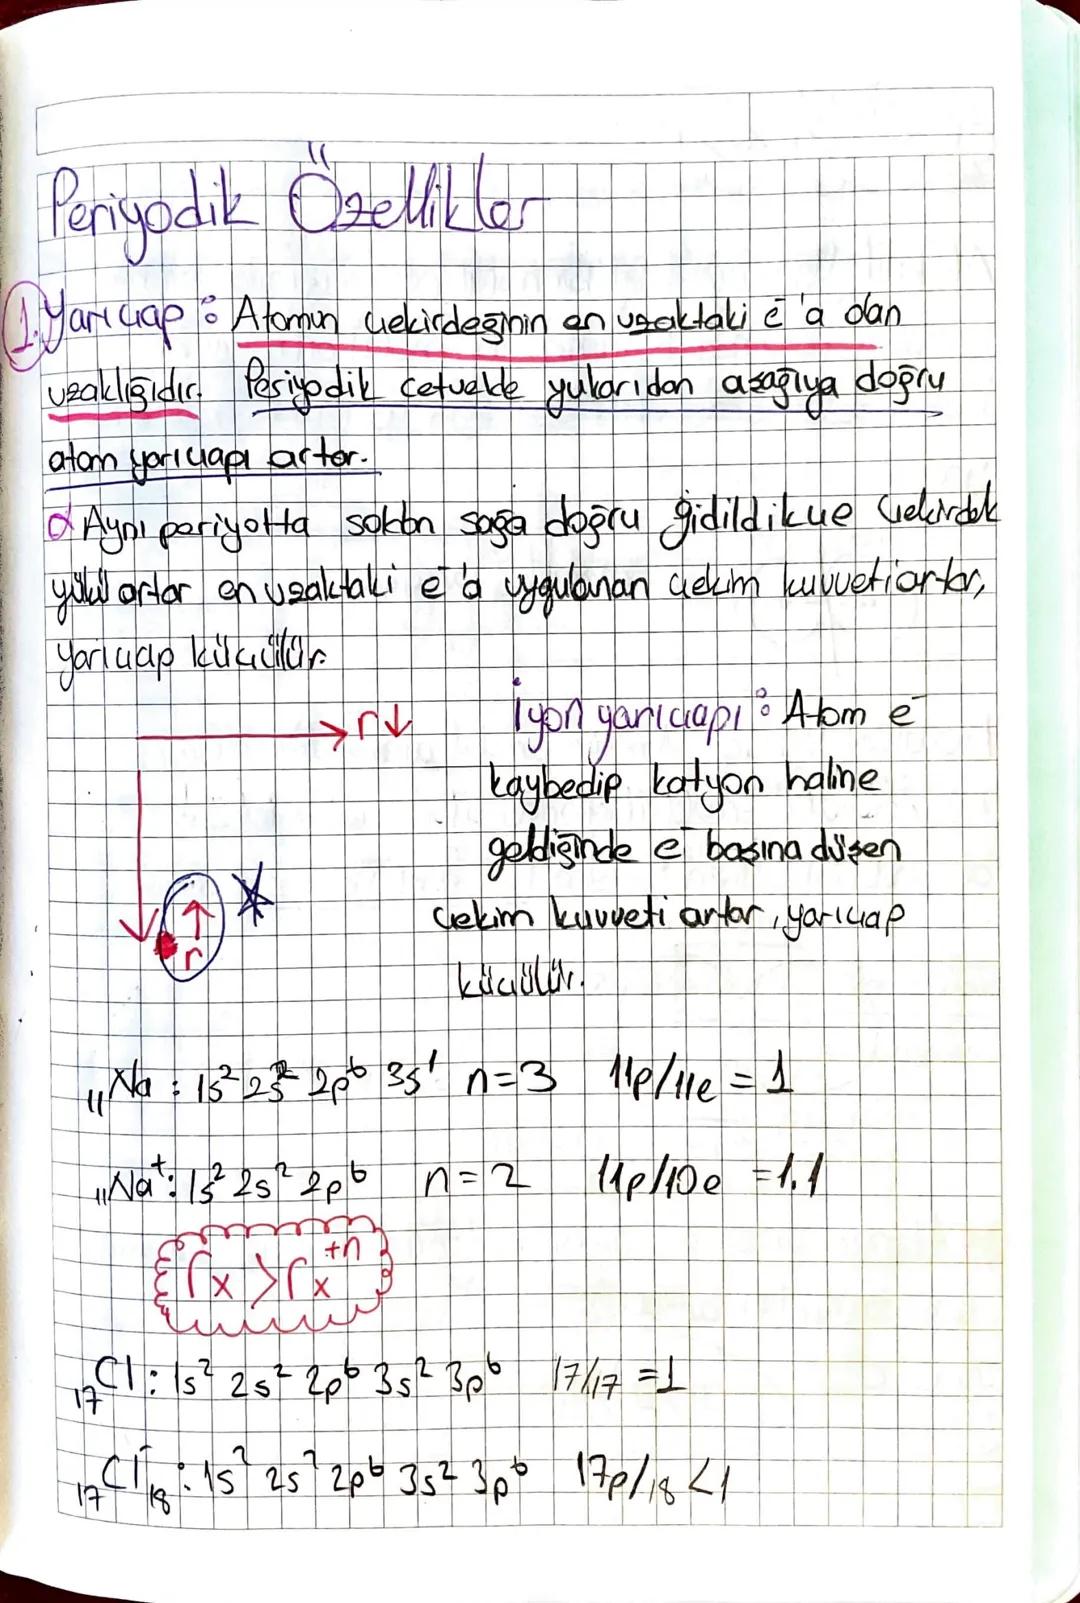 Periyodik Özellikler
1. Yarıçap : Atomun çekirdeğinin en uzaktaki e⁻'a olan
uzaklığıdır. Periyodik cetvelde yukarıdan aşağıya doğru
atom yarıçapı artar.
Aynı periyotta soldan sağa doğru gidildikçe çekirdek
yükü artar en uzaktaki e⁻'a uygulanan çekim kuvveti artar,
yarıçap küçülür.
→ r↓
İyon yarıçapı : Atom e⁻
kaybedip katyon haline
geldiğinde e⁻ başına düşen
çekim kuvveti artar, yarıçap
küçülür.
↑ r
₁₁Na : 1s² 2s² 2p⁶ 3s¹ n=3 11p/11e = 1
₁₁Na⁺: 1s² 2s² 2p⁶ n=2 11p/10e = 1.1
rx > rx⁺ⁿ
₁₇Cl : 1s² 2s² 2p⁶ 3s² 3p⁶ 17/17 = 1
₁₇Cl⁻₁₈ : 1s² 2s² 2p⁶ 3s² 3p⁶ 17p/18 < 1